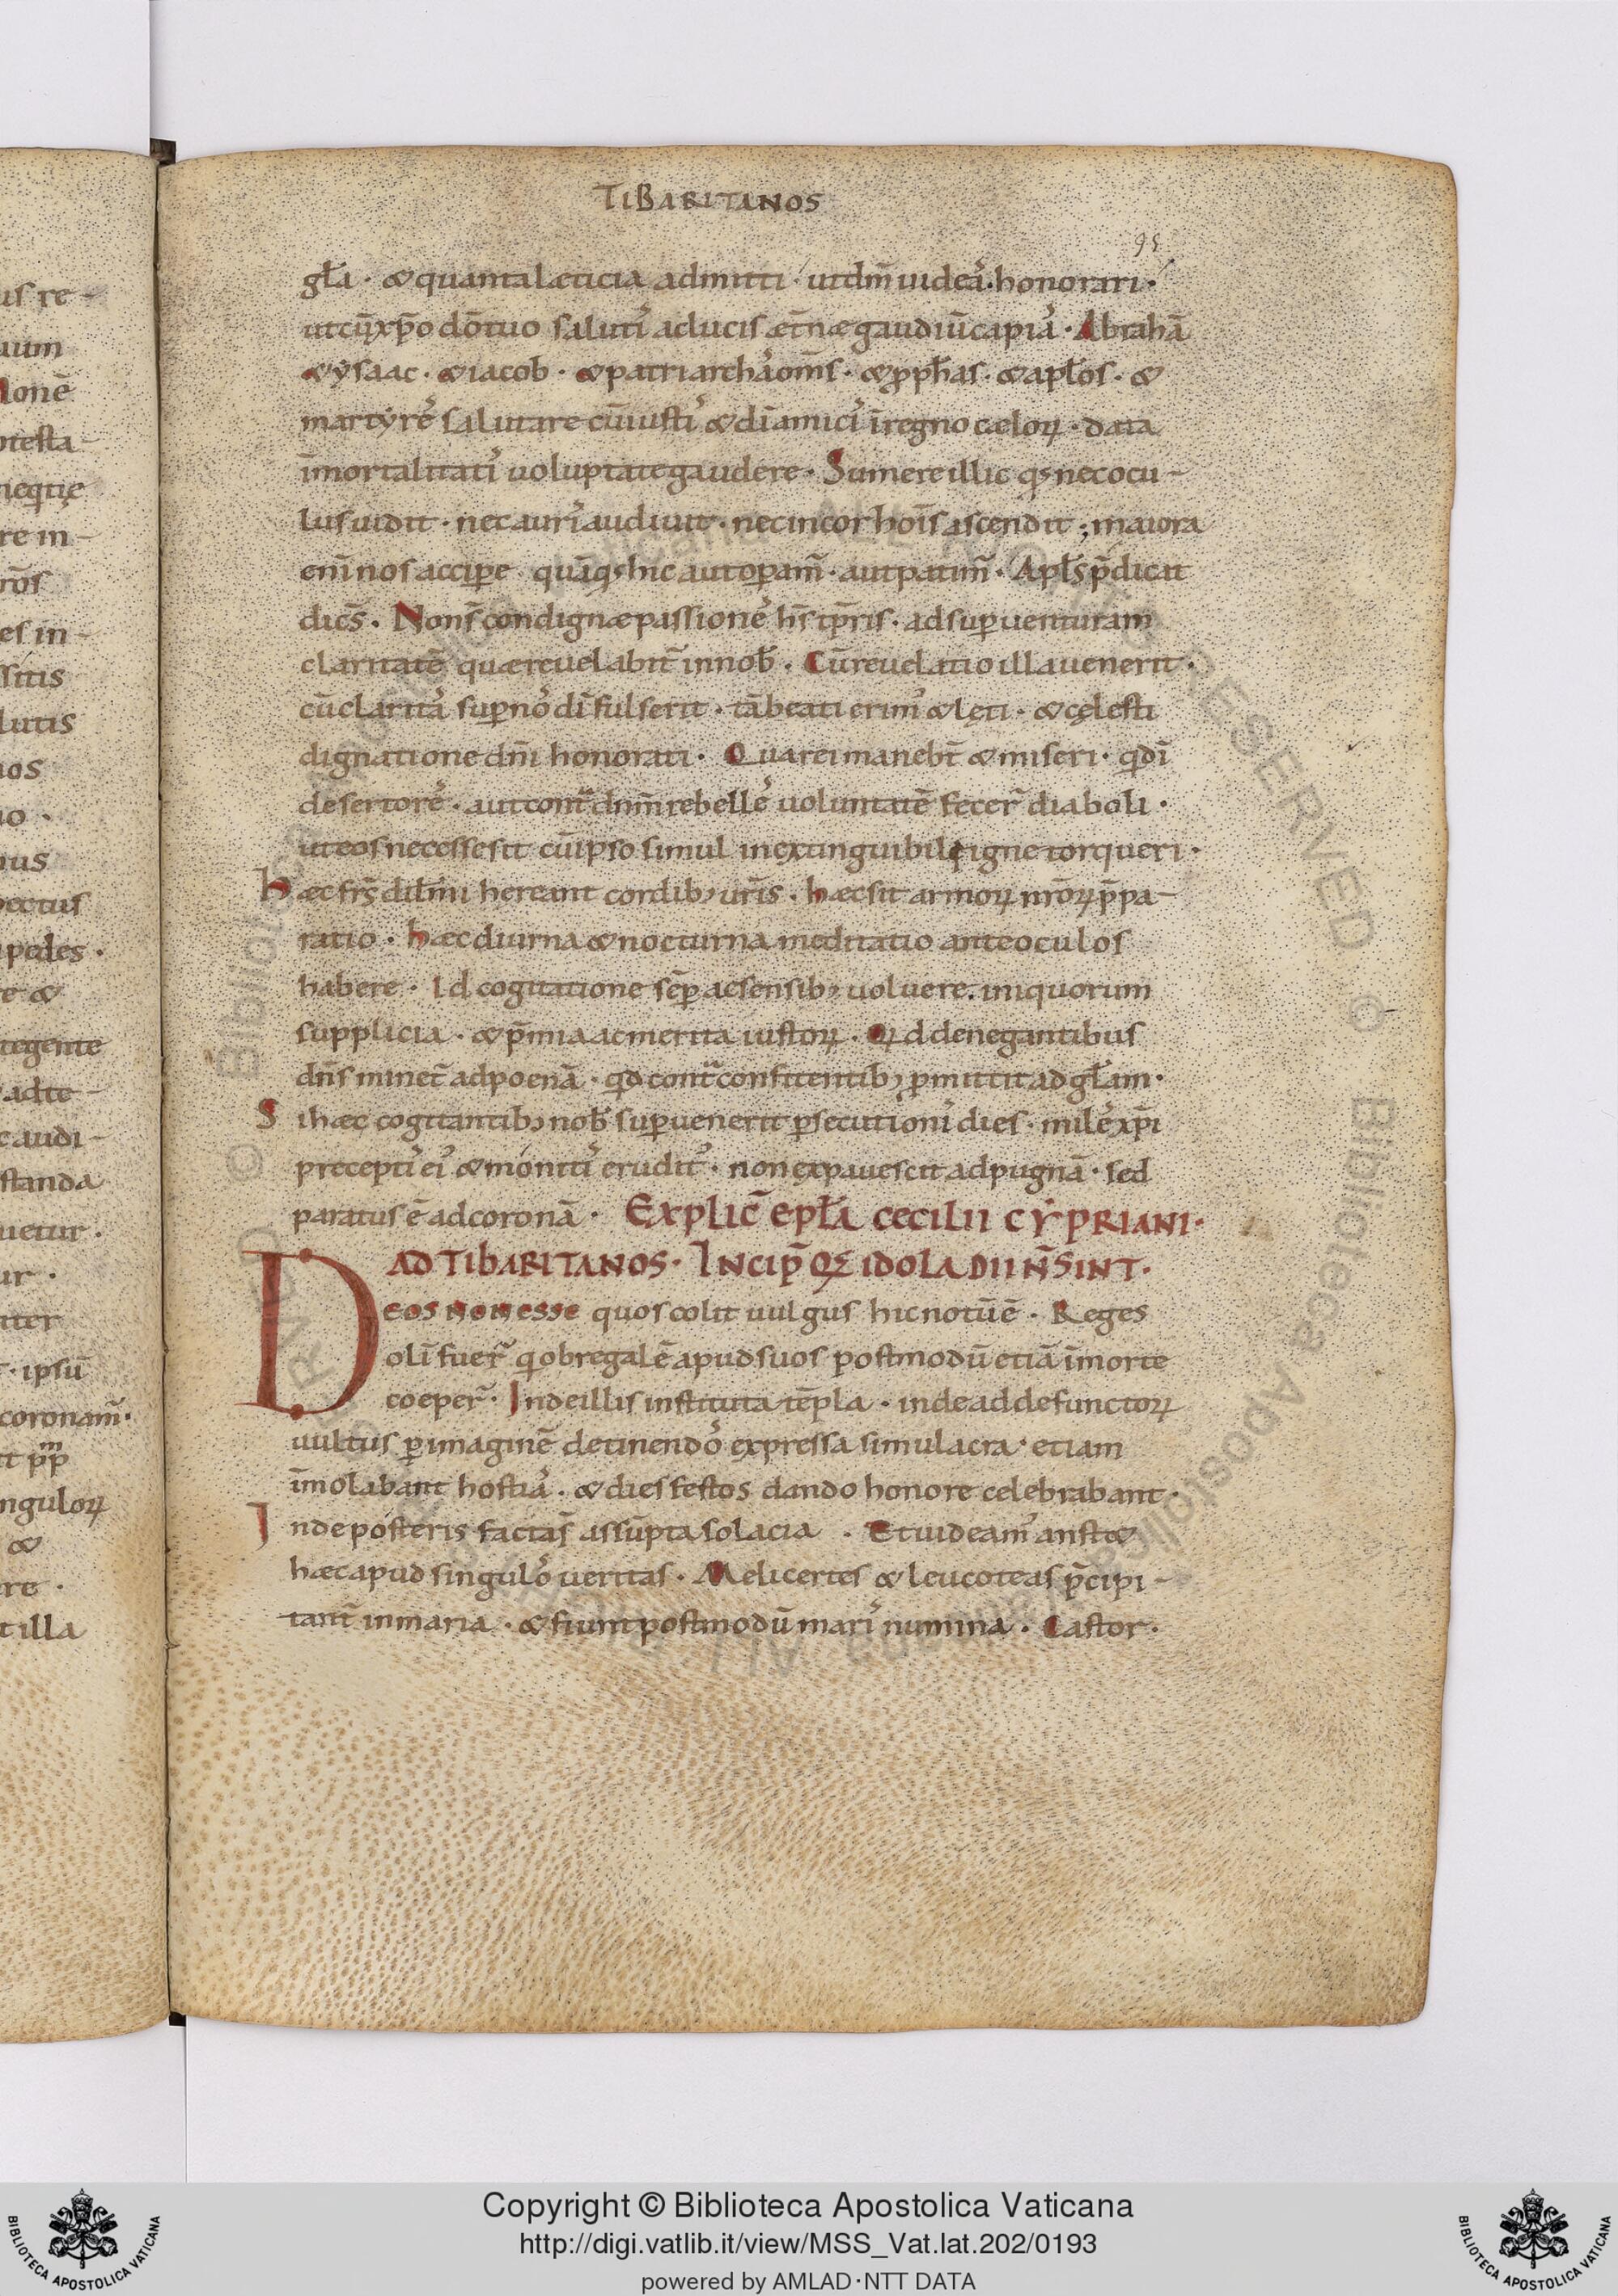 TIBARITANOS
95
gła · & quanta læticia admitti · ut dm̄ uideas honorari ·
ut cū xp̄o dō tuo salutis ac lucis æt̄næ gaudiū capias · Abrahā
& ysaac · & iacob · & patriarchas om̄s · & pp̄has · & apłos · &
martyres salutare cū iustis & dī amicis ī regno cæloꝝ · data
īmortalitatis uoluptate gaudere · Sumere illic qꝫ nec ocu-
lus uidit · nec auris audiuit · nec in cor hoīs ascendit ; maiora
enī nos accipe quā qꝫ hic aut opam̄ · aut patim̄ · Apłs p̄dicat
dicēs · Non s̄ condignæ passiones hs̄ tp̄ris · ad supuenturam
claritatē quæ reuelabit̄ in nob̄ · Cū reuelatio illa uenerit ·
cū claritas sup nos dī fulserit · tā beati erim᾽ & lęti · & cęlesti
dignatione dn̄i honorati · Qua rei maneb̄t & miseri · q dī
desertores · aut cont̄ dnm̄ rebelles uoluntatē fecer̄ diaboli ·
ut eos necesse sit cū ipso simul inextinguibilę igne torqueri ·
Hæc frs̄ dilm̄i hereant cordibꝫ uris̄ · hæc sit armoꝝ nrōꝝ p̄pa-
ratio · hæc diurna & nocturna meditatio ante oculos
habere · Id cogitatione sēp ac sensibꝫ uoluere · iniquorum
supplicia · & p̄mia ac merita iustoꝝ · Qd denegantibus
dn̄s minet̄ ad poenā · qd cont̄ confitentibꝫ pmittit ad głam ·
Si hæc cogitantibꝫ nob̄ supuenerit psecutionis dies · miles xp̄i
preceptis ei᾽ & monitis erudit᾽ · non expauescit ad pugnā · sed
paratus ē ad coronā · Explic̄ epła cecilii cypriani ·
AD TIBARITANOS · INCIP̄ QꝪ IDOLA DII N̄ SINT ·
Deos non esse quos colit uulgus hic notū ē · Reges
olī fuer̄ q ob regalē apud suos postmodū etiā ī morte
coeper̄ · Inde illis instituta tēpla · inde ad defunctoꝝ
uultus p imaginē detinendos expressa simulacra · etiam
īmolabant hostias · & dies festos dando honore celebrabant ·
Inde posteris facta s̄ assūpta solacia · Et uideam᾽ an st&
hæc apud singulos ueritas · Melicertes & leucoteas p̄cipi-
tant̄ in maria · & fiunt postmodū maris numina · Castor ·
us re-
uum
lonē
otesta-
neqtię
re in-
rōs
es in-
sitis
lutis
nos
no ·
nus
pectus
pedes ·
e &
tegente
adte-
caudi-
standa
uetur ·
ur ·
iter
· ipsū
coronam̄ ·
ngulor̄ꝝ
&
re ·
t illa
© Biblioteca Apostolica Vaticana
ALL RIGHTS RESERVED
Copyright © Biblioteca Apostolica Vaticana
http://digi.vatlib.it/view/MSS_Vat.lat.202/0193
powered by AMLAD·NTT DATA
BIBLIOTECA APOSTOLICA VATICANA
BIBLIOTECA APOSTOLICA VATICANA